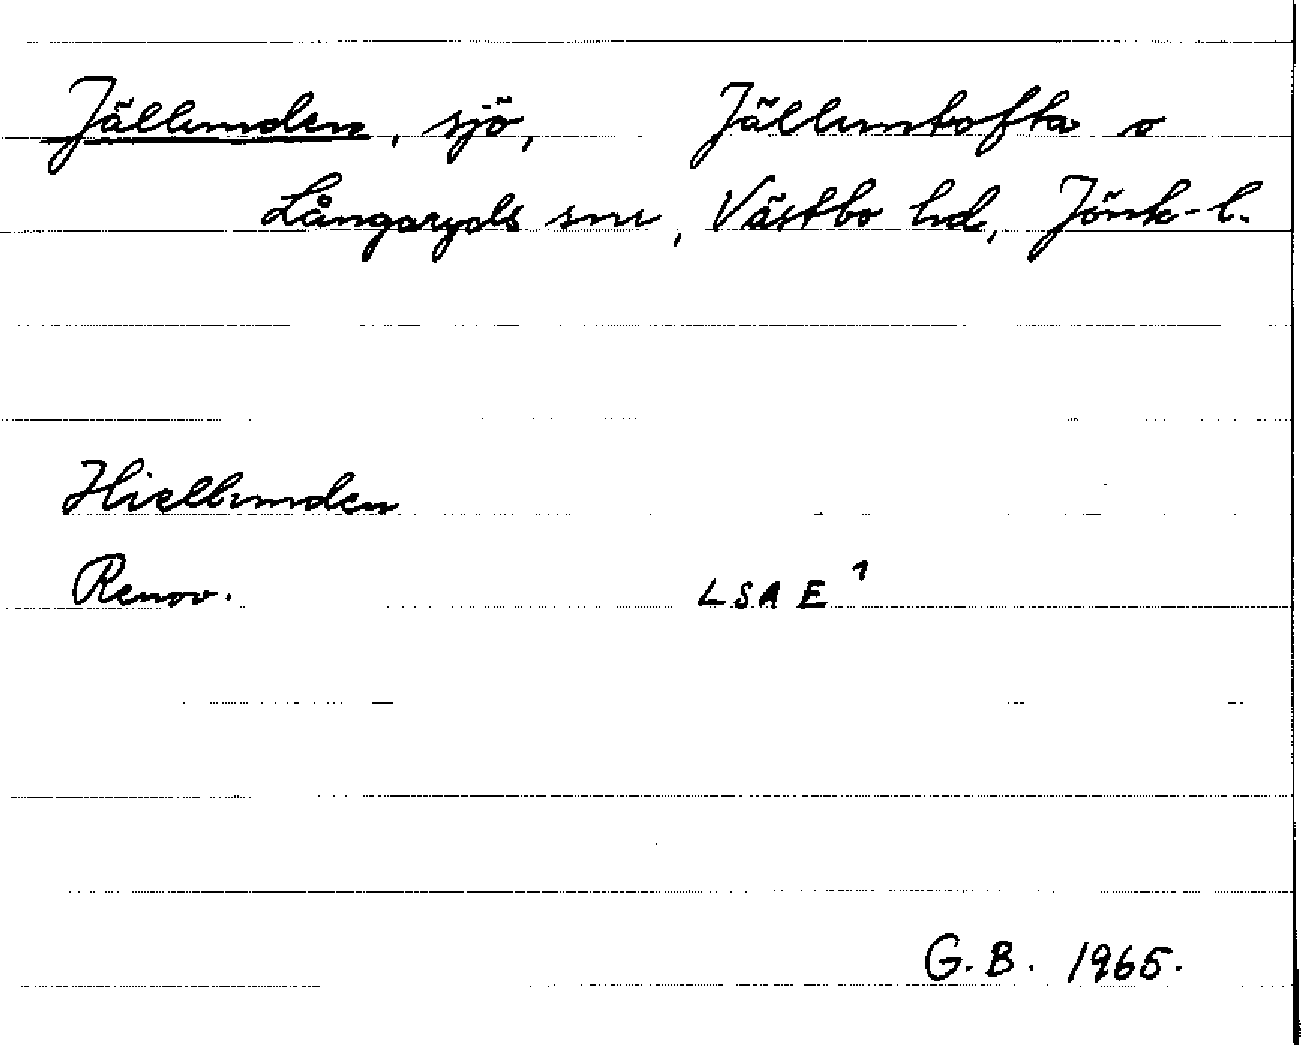 Jällunden, sjö, Jälluntofta o
Långaryds snr, Västbo hd, Jönk-l.
Hiellunden
Renov. LSA E¹
G.B. 1965.